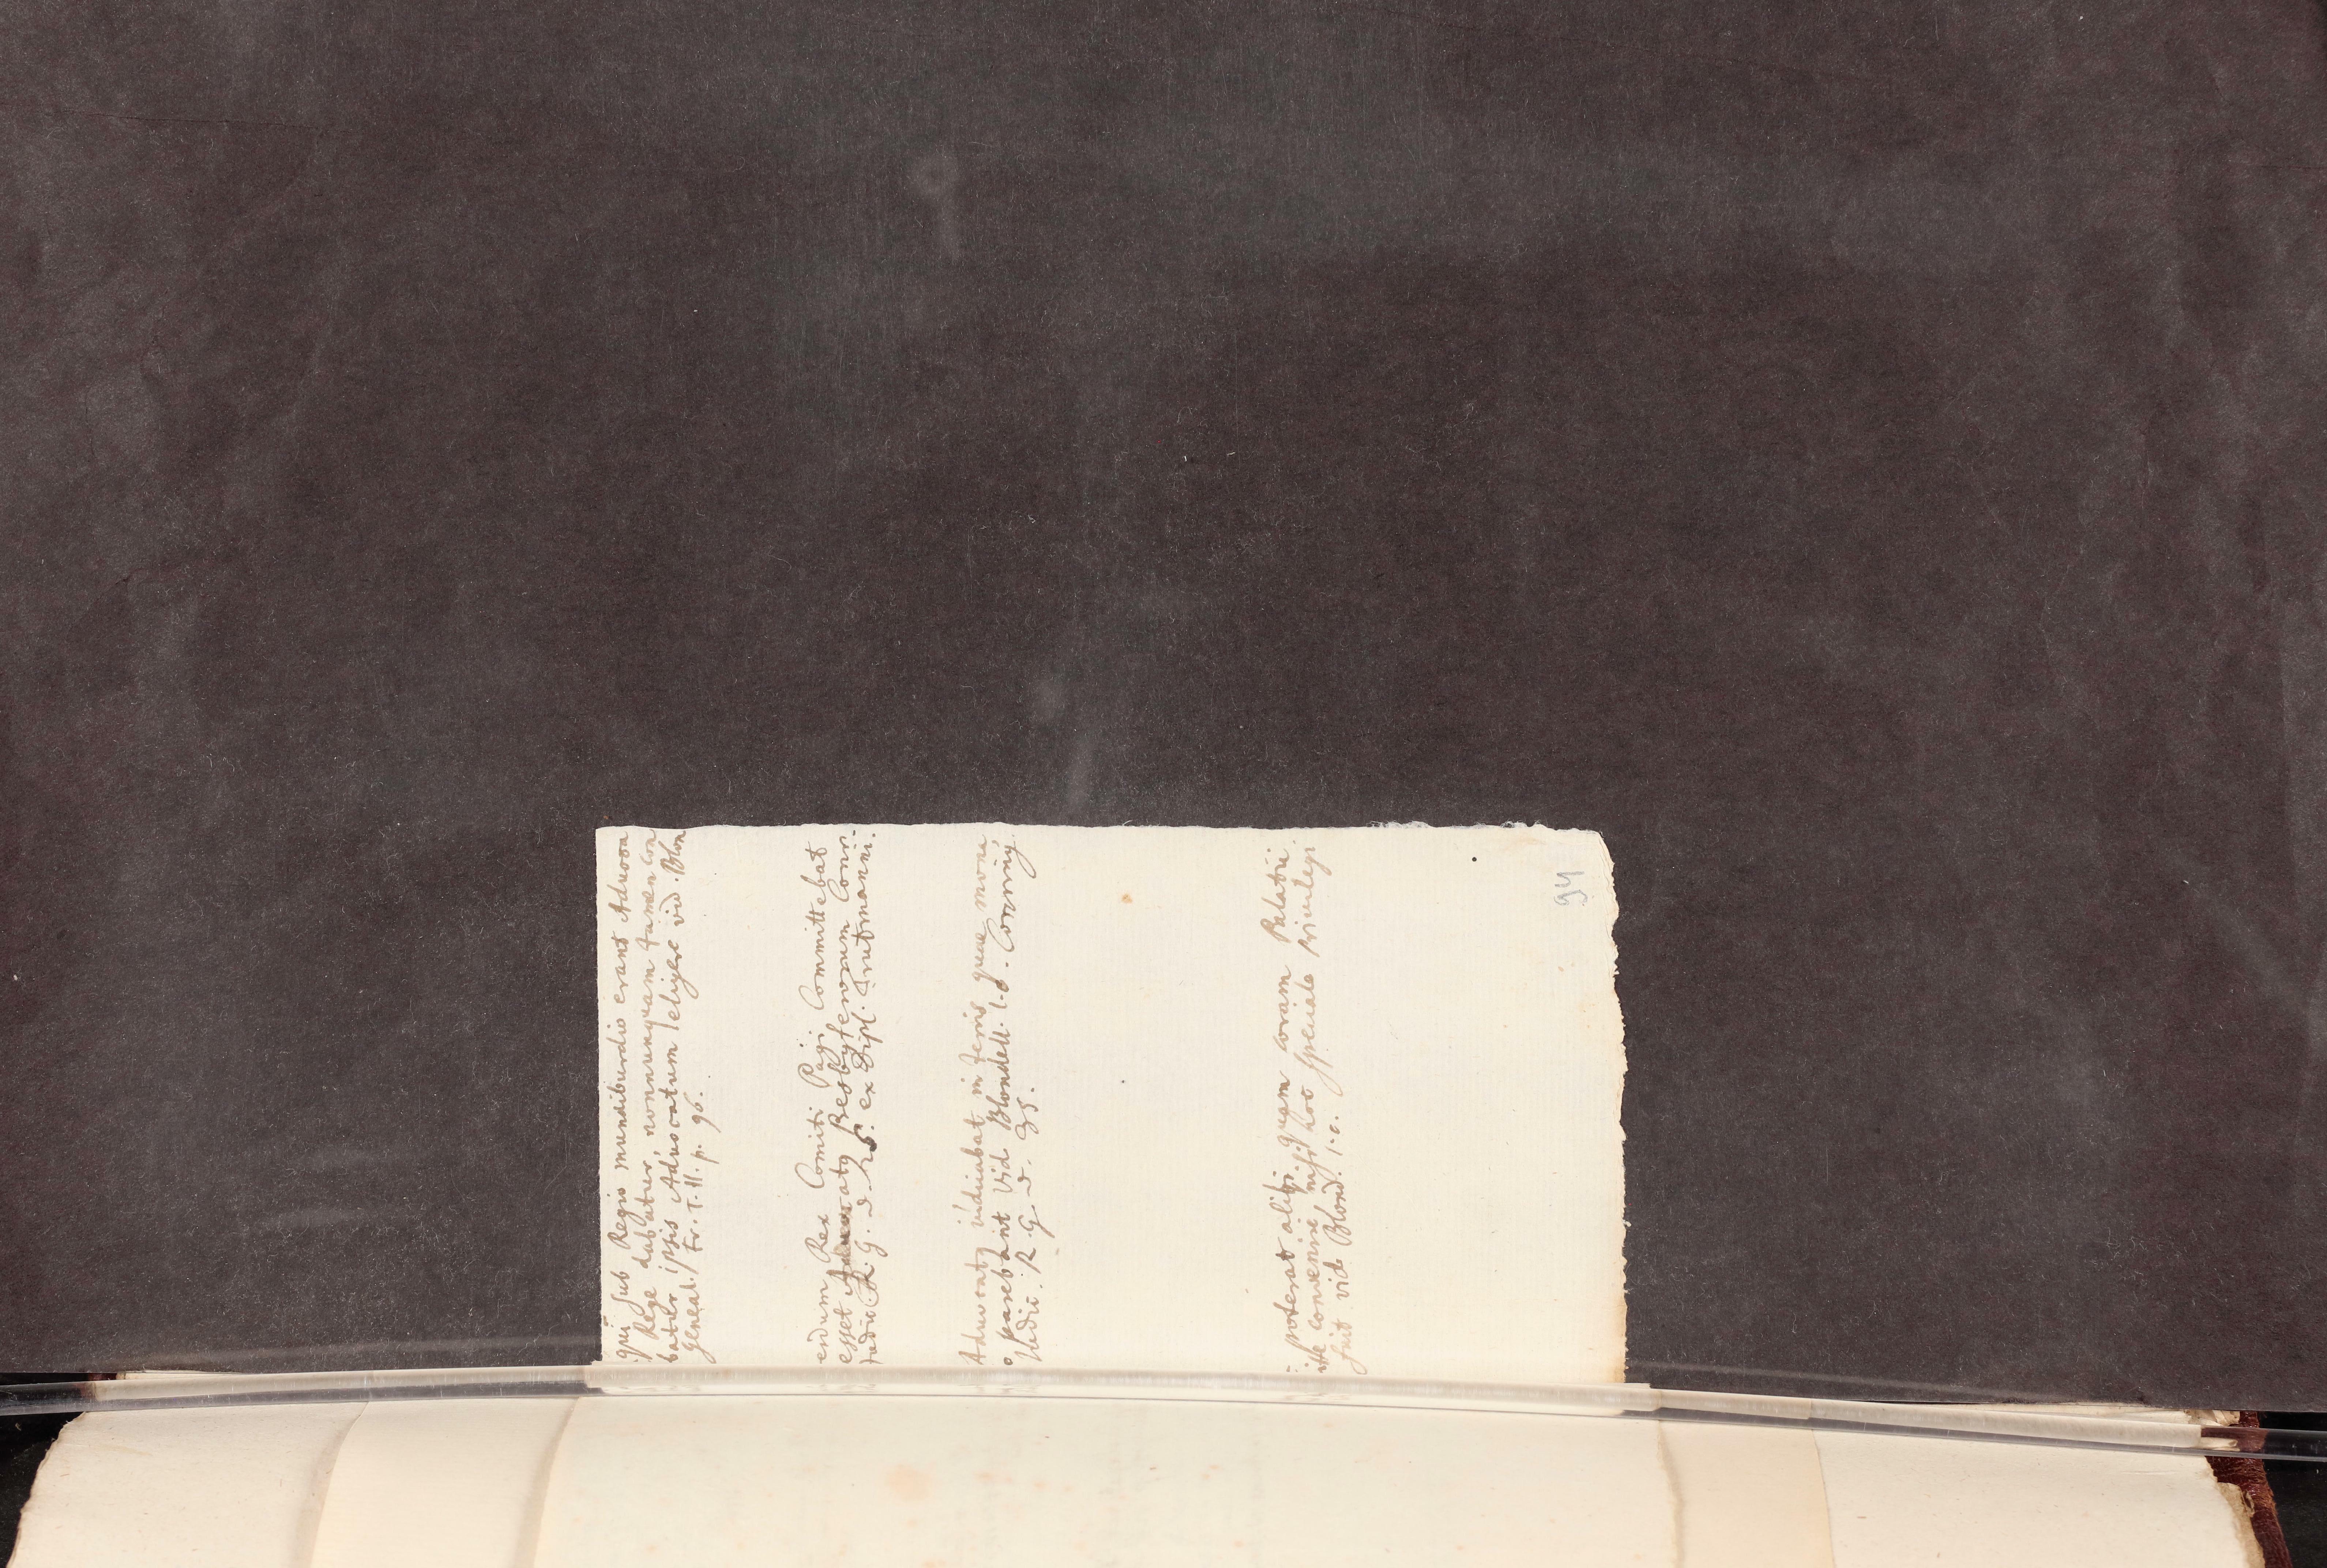 qui sub Regis mundiburdio erant Advoca
Rege dabatur, nonnunquam tamen con
batur ipsis Advocatum seligere vid. Blon
geneal. Fr. T. II. p. 96.
endum Rex Comiti Pagi Committebat
esset Resbyterorum Conri
Judic. R. G. d. 25. ex Dipl. Trutmanni.
Advocatq iudicabat in terris quae mona
parebant vid Blondell. l. d. Conring
Iudic. R. G. d. 35.
poterat alibi quam coram Palatii
conveniri nisi hoc speciale privilegi
fuit vid Blond. l. c.
94